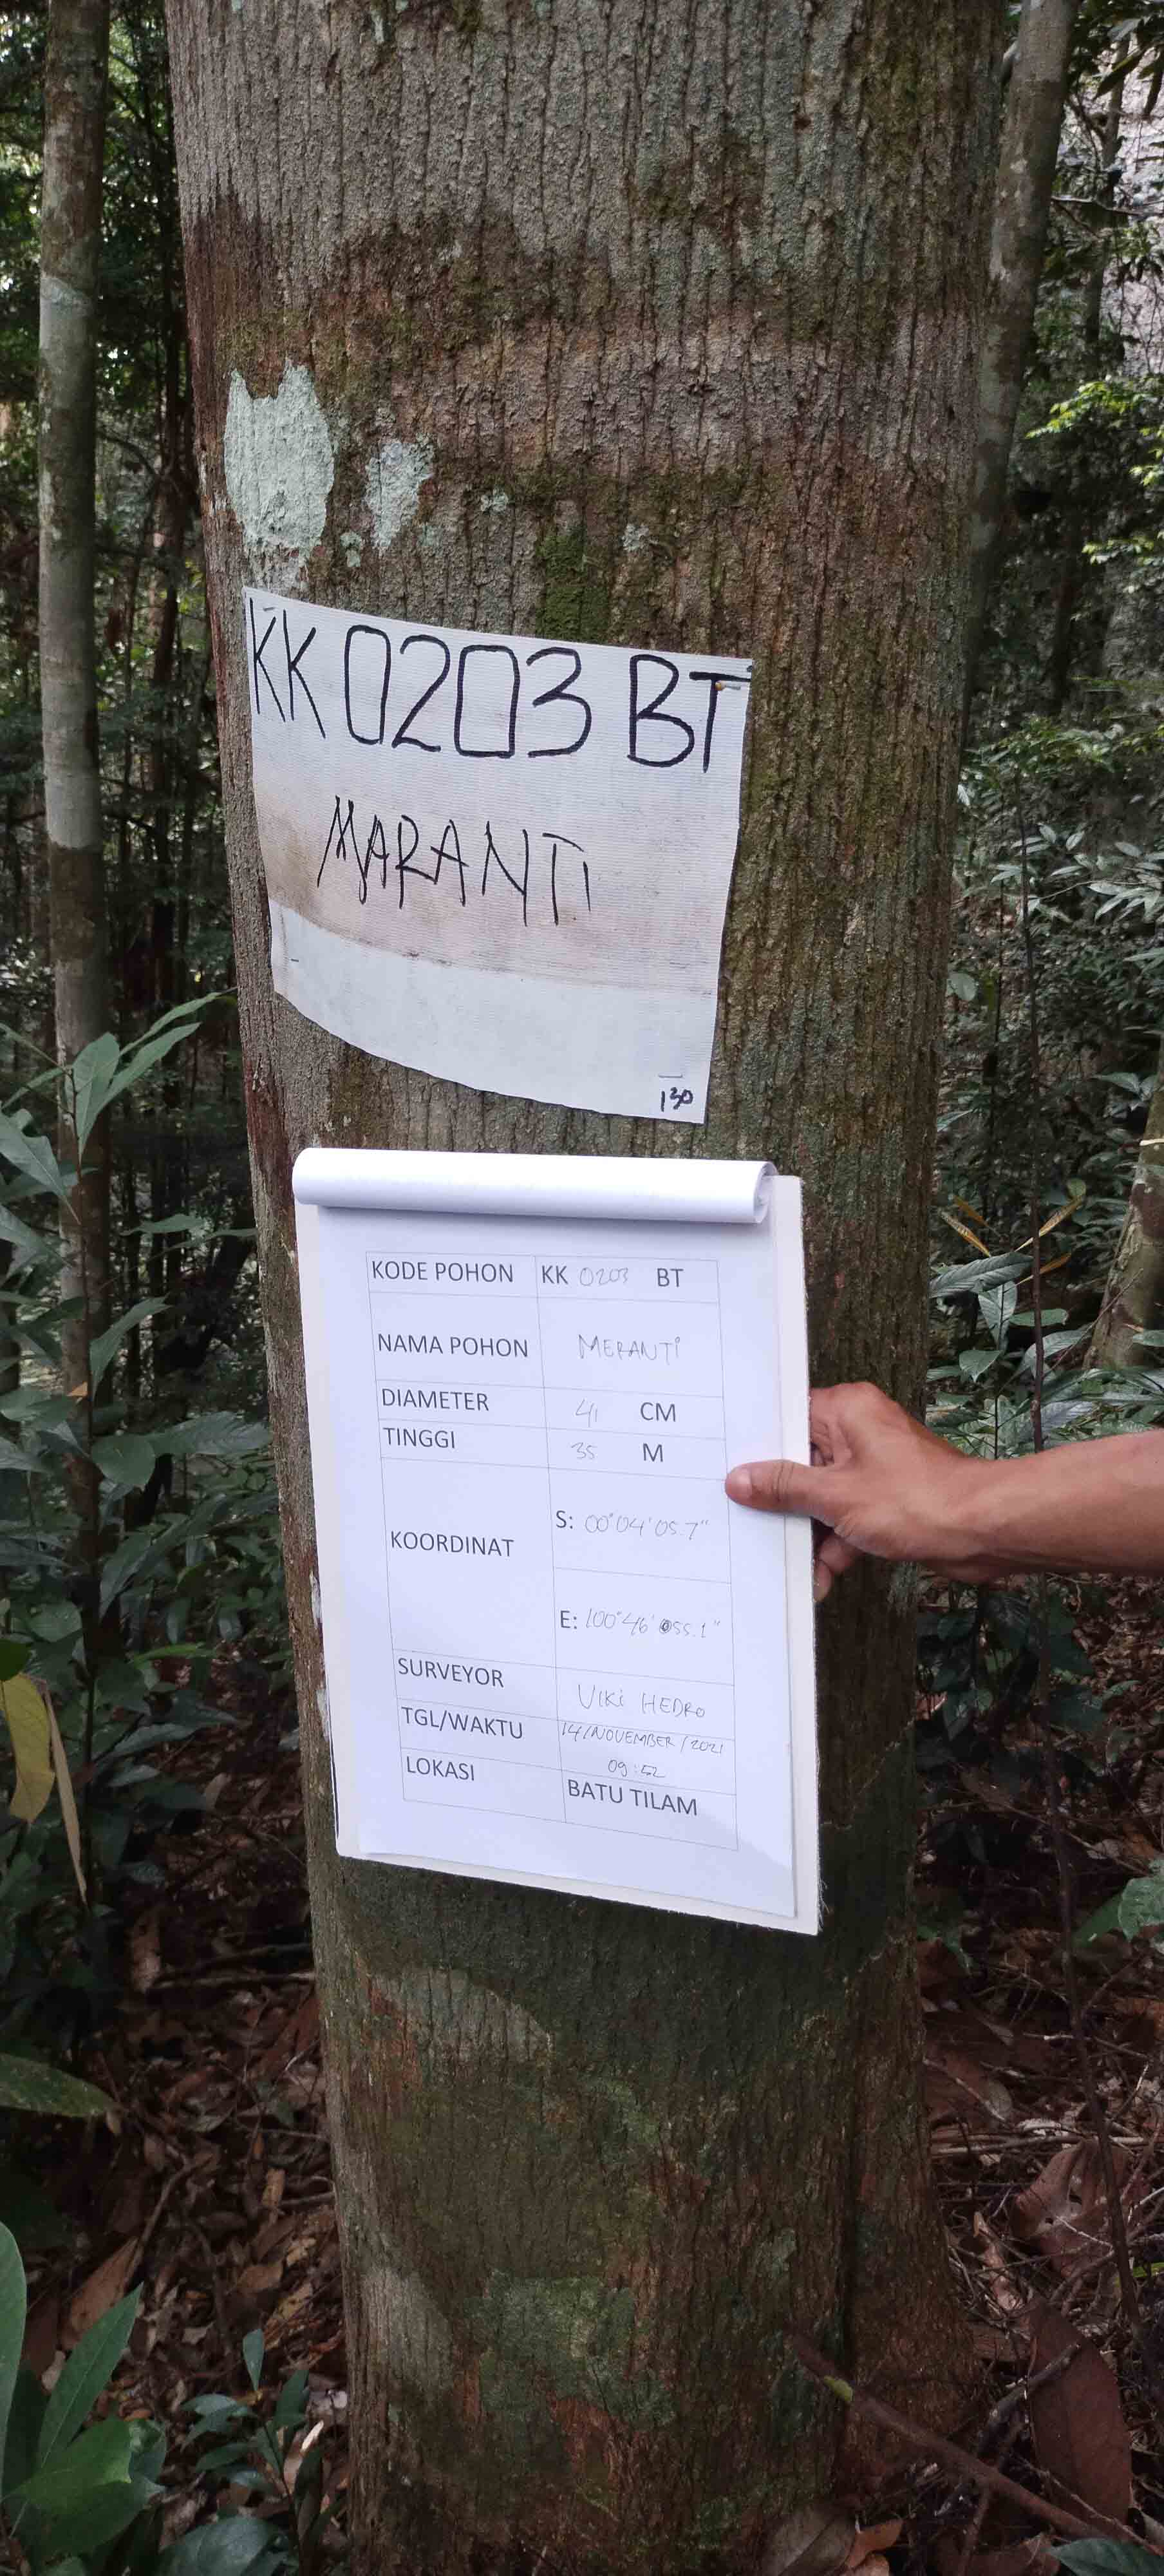 KK 0203 BT
MARANTI
130
KODE POHON KK 0203 BT
NAMA POHON MERANTI
DIAMETER 41 CM
TINGGI 35 M
KOORDINAT
S: 00°04'05.7"
E: 100°46'55.1"
SURVEYOR VIKI HEDRO
TGL/WAKTU 14/NOVEMBER/2021
09:52
LOKASI BATU TILAM